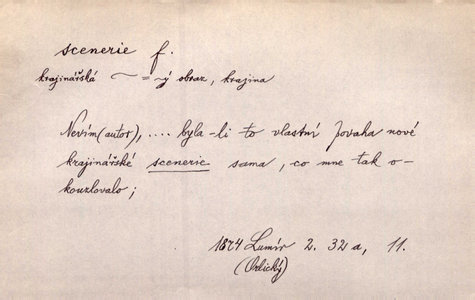 scenerie f.
krajinářská ~ = -ý obraz, krajina
Nevím (autor), .... byla-li to vlastní povaha nové
krajinářské scenerie sama, co mne tak o-
kouzlovalo;
1874 Lumír 2. 32a, 11.
(Orlický)